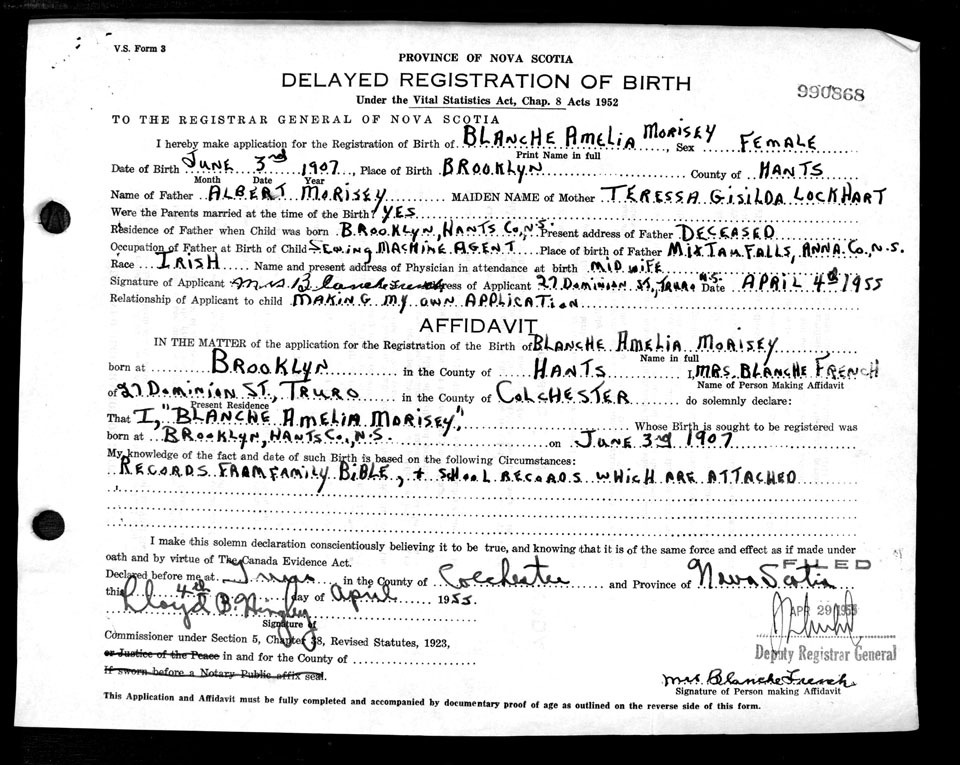 V.S. Form 3
PROVINCE OF NOVA SCOTIA
DELAYED REGISTRATION OF BIRTH
990868
Under the Vital Statistics Act, Chap. 8 Acts 1952
TO THE REGISTRAR GENERAL OF NOVA SCOTIA
I hereby make application for the Registration of Birth of BLANCHE AMELIA MORISEY Sex FEMALE
Print Name in full
Date of Birth JUNE 3rd 1907, Place of Birth BROOKLYN County of HANTS
Month Date Year
Name of Father ALBERT MORISEY MAIDEN NAME of Mother TERESSA GISILDA LOCKHART
Were the Parents married at the time of the Birth? YES
Residence of Father when Child was born BROOKLYN, HANTS CO, N.S. Present address of Father DECEASED
Occupation of Father at Birth of Child SEWING MACHINE AGENT Place of birth of Father MIXTAM FALLS, ANNA. CO., N.S.
Race IRISH Name and present address of Physician in attendance at birth MIDWIFE
Signature of Applicant Mrs Blanche French Address of Applicant 27 DOMINION ST., TRURO N.S. Date APRIL 4th 1955
Relationship of Applicant to child MAKING MY OWN APPLICATION
AFFIDAVIT
IN THE MATTER of the application for the Registration of the Birth of BLANCHE AMELIA MORISEY
Name in full
born at BROOKLYN in the County of HANTS I, MRS. BLANCHE FRENCH
Name of Person Making Affidavit
of 27 DOMINION ST., TRURO in the County of COLCHESTER do solemnly declare:
Present Residence
That I, "BLANCHE AMELIA MORISEY", Whose Birth is sought to be registered was
born at BROOKLYN, HANTS CO., N.S. on JUNE 3rd 1907
My knowledge of the fact and date of such Birth is based on the following Circumstances:
RECORDS FROM FAMILY BIBLE, + SCHOOL RECORDS WHICH ARE ATTACHED
I make this solemn declaration conscientiously believing it to be true, and knowing that it is of the same force and effect as if made under
oath and by virtue of The Canada Evidence Act.
FILED
Declared before me at Truro in the County of Colchester and Province of Nova Scotia
this 4th day of April 1955.
Lloyd B.
APR 29 1955
Signature of
Commissioner under Section 5, Chapter 38, Revised Statutes, 1923,
or Justice of the Peace in and for the County of
Deputy Registrar General
If sworn before a Notary Public affix seal.
Mrs. Blanche French
Signature of Person making Affidavit
This Application and Affidavit must be fully completed and accompanied by documentary proof of age as outlined on the reverse side of this form.